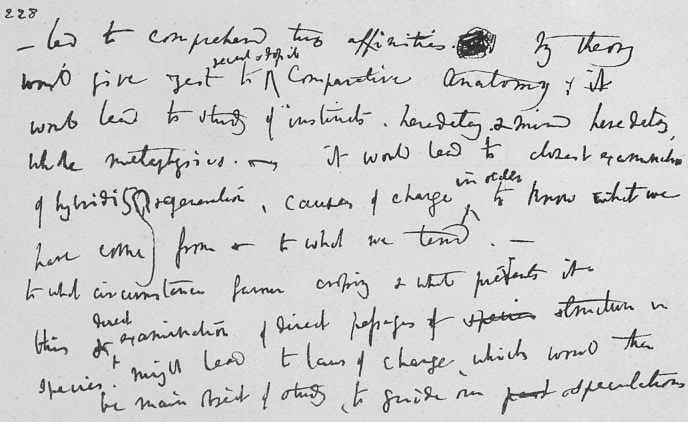 228
— led to comprehend two affinities. My theory
would give zest to recent & fossil Comparative Anatomy, & it
would lead to study of instincts, heredetary & mind heredetary,
whole metaphysics. — it would lead to closest examination
of hybridity regeneration, causes of change in order to know what we
have come from & to what we tend. —
to what circumstances favour crossing & what prevents it —
this & direct examination of direct passages of species structure in
species, might lead to laws of change, which would then
be main object of study, to guide our past speculations